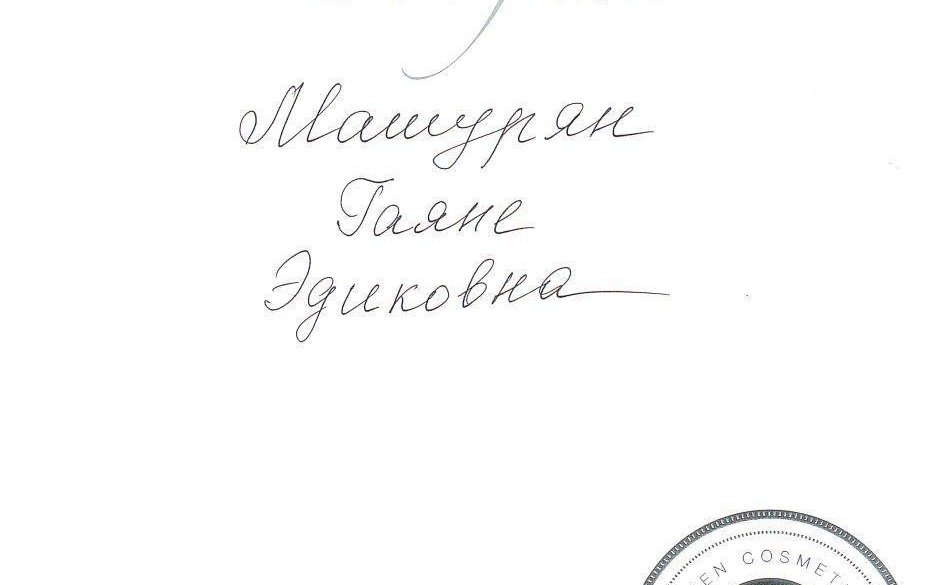 Машурян
Гаяне
Эдиковна
EN COSMET